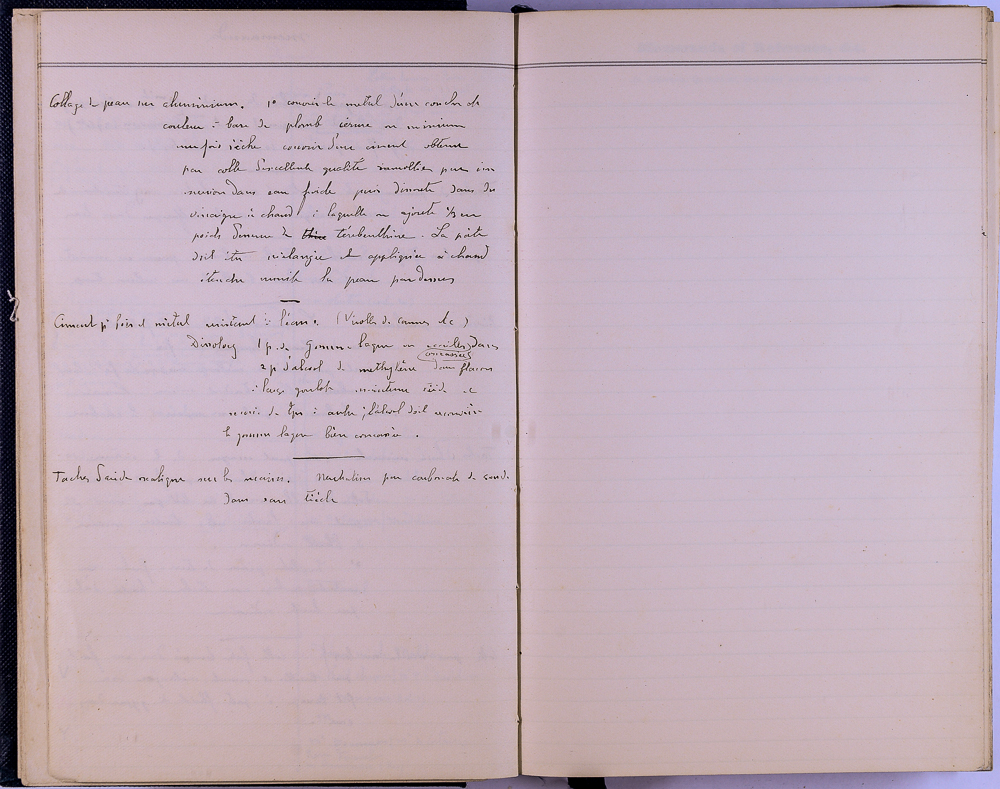 Collage de peau sur aluminium. 1° couvrir le metal d'une couche de
couleur à base de plomb céruse ou minium
une fois sèche couvrir d'un ciment obtenu
par colle d'excellente qualité ramollie par im
mersion dans eau froide puis dissoute dans du
vinaigre à chaud, à laquelle on ajoute 1/3 en
poids d'essence de térébenthine. La pâte
doit être mélangée et appliquée à chaud
étendre ensuite la peau par dessus
Ciment pr bois et métal resistant à l'eau. (Viroles de cannes etc)
Dissolvez 1 p. de Gomme laque en écailles, dans
concassées
2 p d'alcool de methylène dans flacon
à large goulot maintenu
de tps à autre, l'alcool doit
la gomme laque bien concassée.
Taches d'acide oxalique sur les mains. Neutraliser par carbonate de soude
dans eau tiède